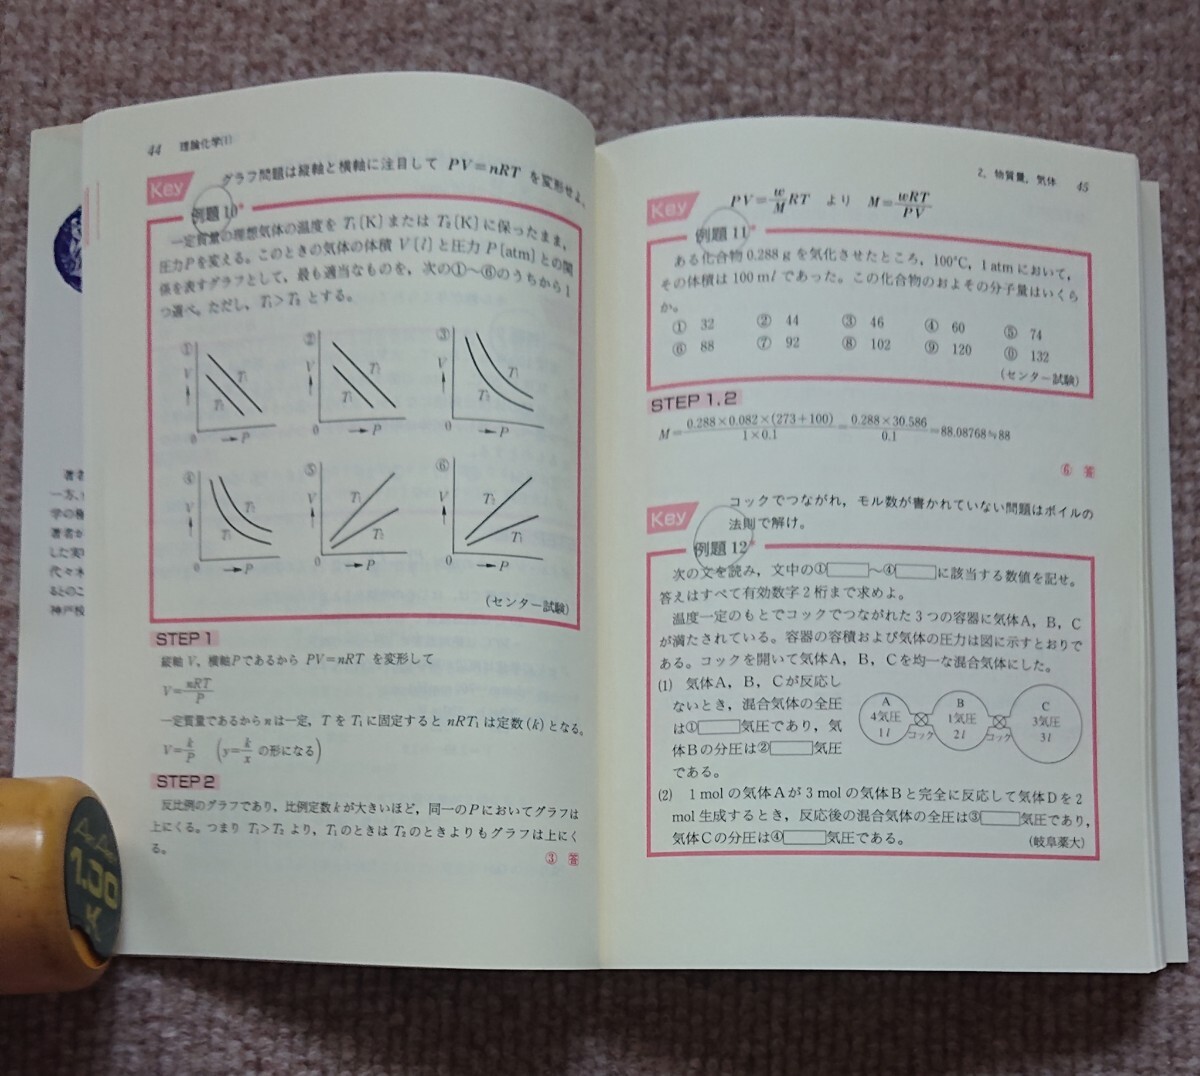 44 理論化学(1)
Key グラフ問題は縦軸と横軸に注目して PV=nRT を変形せよ。
例題10*
一定質量の理想気体の温度を T₁〔K〕または T₂〔K〕に保ったまま,
圧力Pを変える。このときの気体の体積 V〔l〕と圧力 P〔atm〕との関
係を表すグラフとして, 最も適当なものを, 次の①〜⑥のうちから1
つ選べ。ただし, T₁>T₂ とする。
① V T₁ 0 P
② V T₂ T₁ 0 P
③ V T₁ T₂ 0 P
④ V T₂ T₁ 0 P
⑤ V T₁ T₂ 0 P
⑥ V T₂ T₁ 0 P
(センター試験)
STEP 1
縦軸 V, 横軸Pであるから PV=nRT を変形して
V=nRT/P
一定質量であるからnは一定, T を T₁ に固定すると nRT₁ は定数(k)となる。
V=k/P (y=k/x の形になる)
STEP 2
反比例のグラフであり, 比例定数kが大きいほど, 同一のPにおいてグラフは
上にくる。つまり T₁>T₂ より, T₁のときは T₂のときよりもグラフは上にく
る。
③ 答
2. 物質量, 気体 45
Key PV=w/M RT より M=wRT/PV
例題11*
ある化合物0.288 g を気化させたところ, 100℃, 1 atm において,
その体積は100 ml であった。この化合物のおよその分子量はいくら
か。
① 32 ② 44 ③ 46 ④ 60 ⑤ 74
⑥ 88 ⑦ 92 ⑧ 102 ⑨ 120 ⓪ 132
(センター試験)
STEP 1,2
M=0.288×0.082×(273+100)/1×0.1=0.288×30.586/0.1=88.08768≒88
⑥ 答
Key コックでつながれ, モル数が書かれていない問題はボイルの
法則で解け。
例題12*
次の文を読み, 文中の①□〜④□に該当する数値を記せ。
答えはすべて有効数字2桁まで求めよ。
温度一定のもとでコックでつながれた3つの容器に気体A, B, C
が満たされている。容器の容積および気体の圧力は図に示すとおりで
ある。コックを開いて気体A, B, Cを均一な混合気体にした。
(1) 気体A, B, Cが反応し
ないとき, 混合気体の全圧
は①□気圧であり, 気
体Bの分圧は②□気圧
である。
A 4気圧 1l
コック
B 1気圧 2l
コック
C 3気圧 3l
(2) 1 mol の気体Aが3 mol の気体Bと完全に反応して気体Dを2
mol 生成するとき, 反応後の混合気体の全圧は③□気圧であり,
気体Cの分圧は④□気圧である。 (岐阜薬大)
著者
一方,
学の
著者が
した実
代々木
るとのこ
神戸校
1.00
K